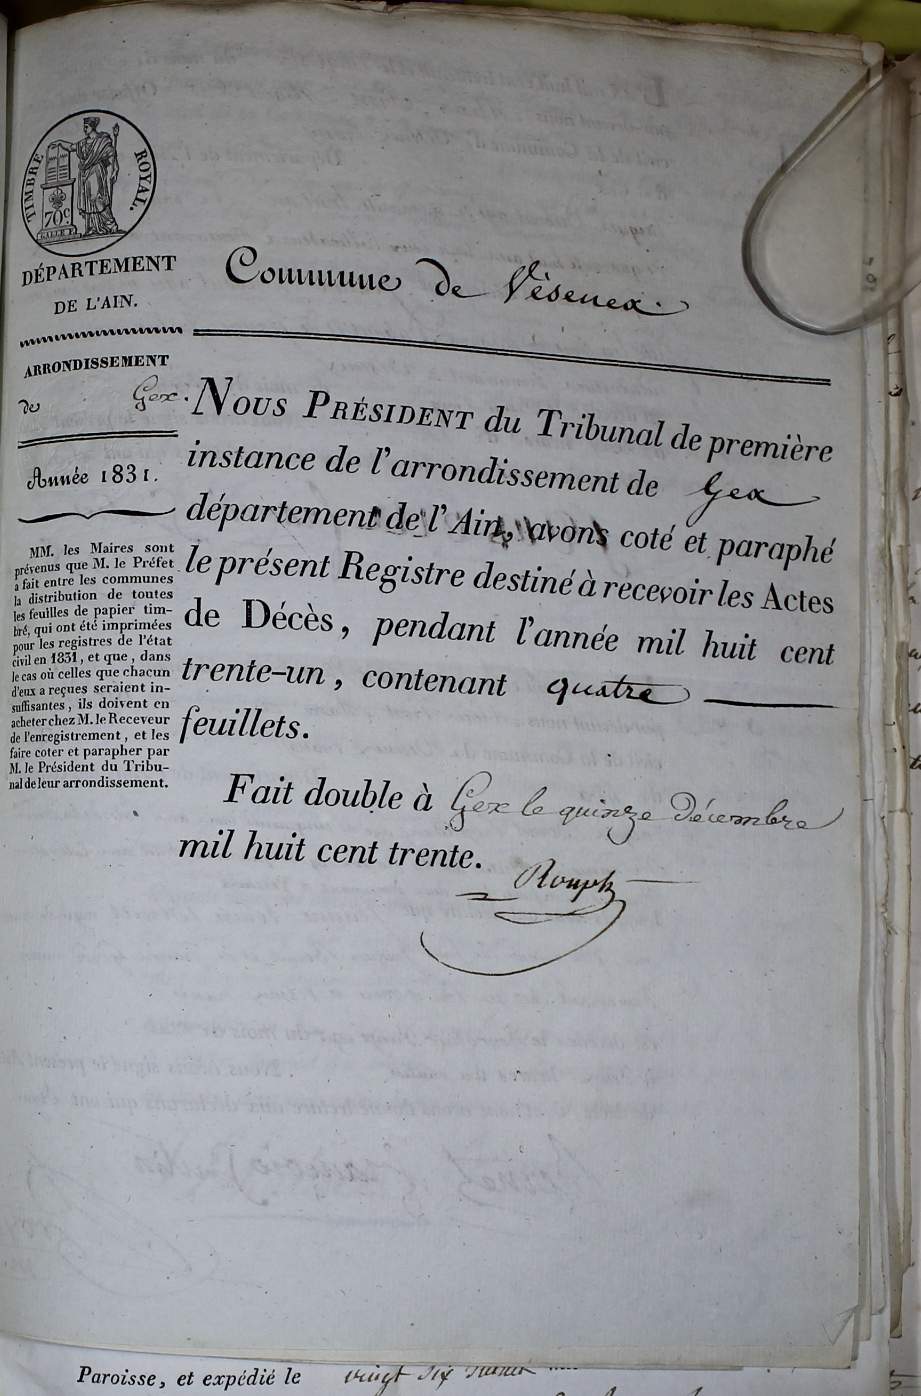 TIMBRE ROYAL.
70c
DÉPARTEMENT
DE L'AIN.
ARRONDISSEMENT
de Gex.
Année 1831.
MM. les Maires sont
prévenus que M. le Préfet
a fait entre les communes
la distribution de toutes
les feuilles de papier tim-
bré, qui ont été imprimées
pour les registres de l'état
civil en 1831, et que, dans
le cas où celles que chacun
d'eux a reçues seraient in-
suffisantes, ils doivent en
acheter chez M. le Receveur
de l'enregistrement, et les
faire coter et parapher par
M. le Président du Tribu-
nal de leur arrondissement.
Commune de Vésenex.
NOUS PRÉSIDENT du Tribunal de première
instance de l'arrondissement de Gex
département de l'Ain, avons coté et paraphé
le présent Registre destiné à recevoir les Actes
de Décès, pendant l'année mil huit cent
trente-un, contenant quatre
feuillets.
Fait double à Gex le quinze Décembre
mil huit cent trente.
Rouph
Paroisse, et expédié le vingt six